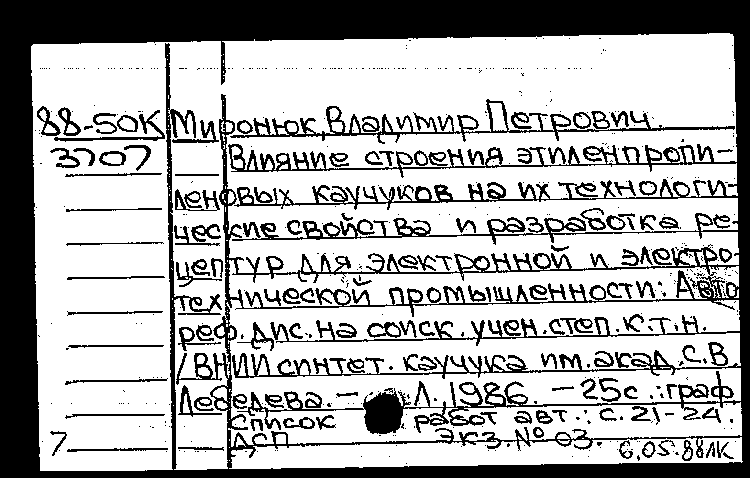 88-50К Миронюк, Владимир Петрович.
3707 Влияние строения этиленпропи-
леновых каучуков на их технологи-
ческие свойства и разработка ре-
цептур для электронной и электро-
технической промышленности: Авто
реф. дис. на соиск. учен. степ. к.т.н.
/ВНИИ синтет. каучука им. акад. С.В.
Лебедева. — Л., 1986. — 25с.: граф
Список работ авт.: с. 21-24.
7 ДСП Экз. № 03.
6.05.88ЛК